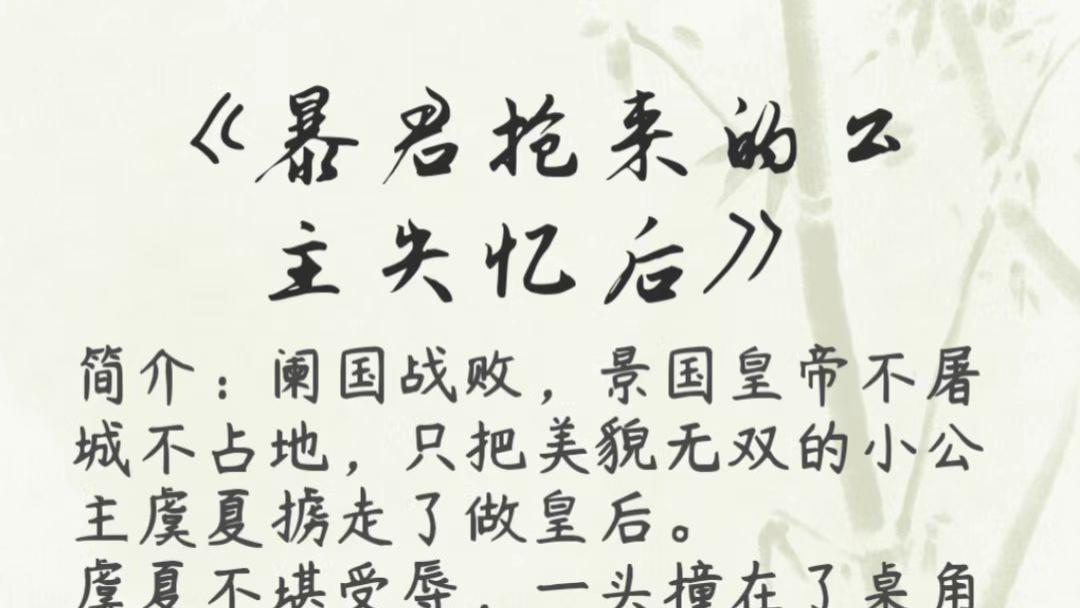 《暴君抢来的公
主失忆后》
简介：阑国战败，景国皇帝不屠
城不占地，只把美貌无双的小公
主虞夏掳走了做皇后。
虞夏不堪受辱，一头撞在了桌角